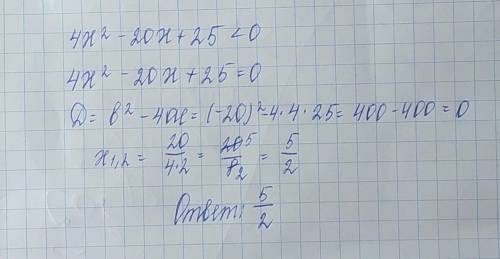 4x² - 20x + 25 < 0
4x² - 20x + 25 = 0
D = b² - 4ac = (-20)² - 4·4·25 = 400 - 400 = 0
x₁,₂ = 20/4·2 = 20 5/8 2 = 5/2
Ответ: 5/2